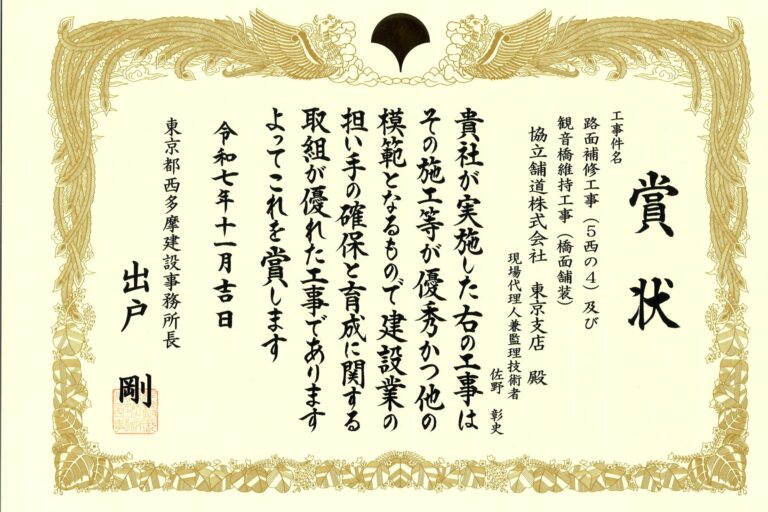 賞状
工事件名
路面補修工事（５西の４）及び
観音橋維持工事（橋面舗装）
協立舗道株式会社　東京支店　殿
現場代理人兼監理技術者
佐野　彰史
貴社が実施した右の工事は
その施工等が優秀かつ他の
模範となるもので建設業の
担い手の確保と育成に関する
取組が優れた工事であります
よってこれを賞します
令和七年十一月吉日
東京都西多摩建設事務所長
出戸　剛